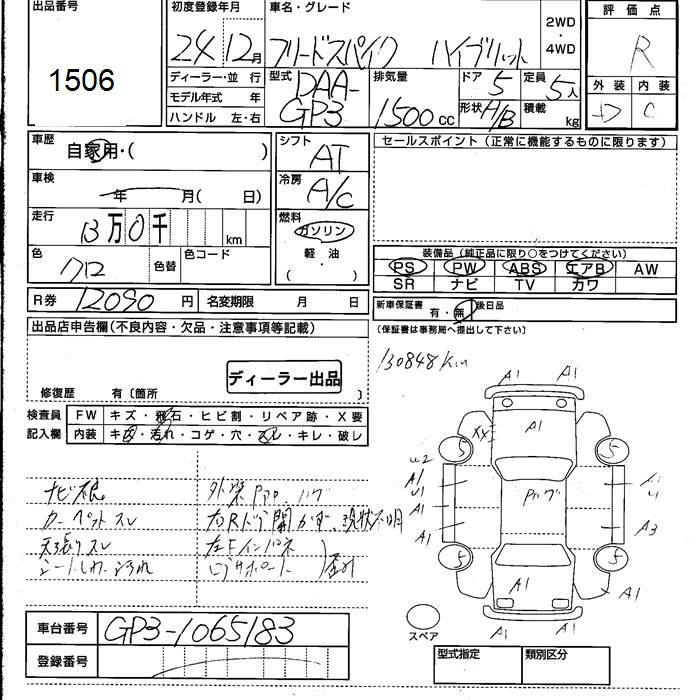 出品番号
1506
初度登録年月
24 12月
車名・グレード
フリードスパイク ハイブリット
2WD
・
4WD
評価点
R
ディーラー・並 行
モデル年式 年
ハンドル 左・右
型式
DAA-
GP3
排気量
1500cc
ドア
5
定員
5人
形状
H/B
積載
kg
外装 内装
D C
車歴
自家用・( )
車検
年 月( 日)
走行
13万0千
km
色
クロ
色替
色コード
シフト
AT
冷房
A/C
燃料
ガソリン
軽・油
( ・ )
セールスポイント(正常に機能するものに限ります)
装備品(純正品に限り○をつけてください)
PS PW ABS エアB AW
SR ナビ TV カワ
R券 12090 円 名変期限 月 日
新車保証書 有・無 後日品
(保証書は事務局へ提出して下さい)
出品店申告欄(不良内容・欠品・注意事項等記載)
ディーラー出品
修復歴 有〔箇所 〕
130848km
検査員
記入欄
FW キズ・飛石・ヒビ割・リペア跡・X要
内装 キズ・汚れ・コゲ・穴・スレ・キレ・破レ
ナビ不良
カーペットスレ
天張りスレ
シートしわ、よごれ
右Rドア開かず、現状不明
左Fインパネ
コアサポート
歪み
A1 A1
XX
A1
5 5
U2
A1
U1
A1
A1
A1
U1
A3
5 5
A1
A1
A1 A1
スペア
車台番号 GP3-1065183
登録番号
型式指定 類別区分